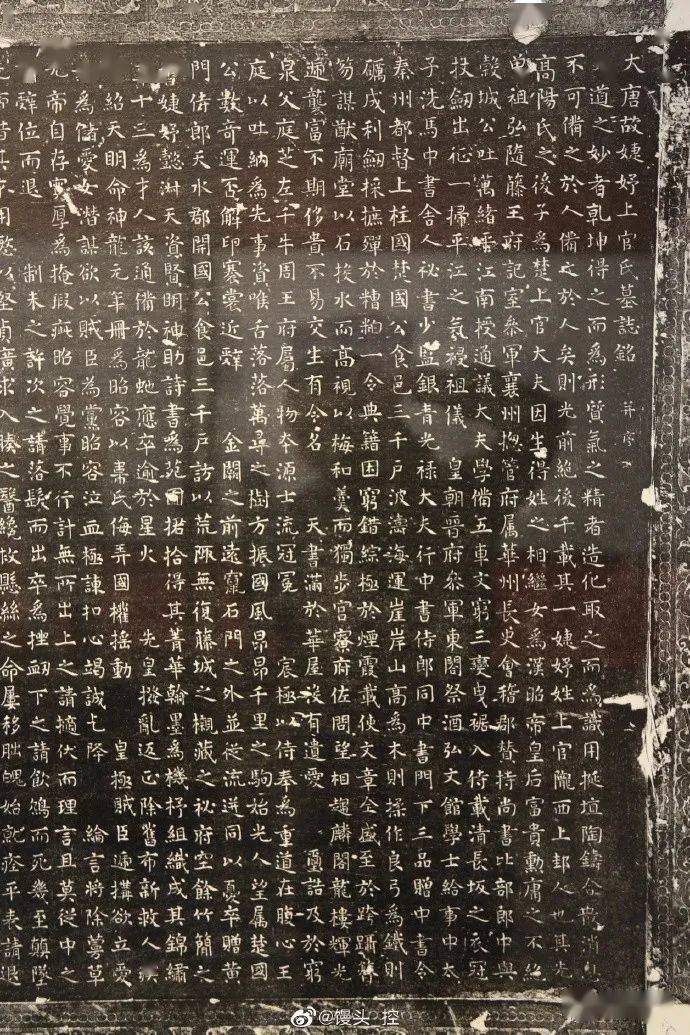 大唐故婕妤上官氏墓誌銘 并序
道之妙者乾坤得之而為形質氣之精者造化取之而為識用挻埴陶鑄合散消息
不可備之於人備之於人矣則光前絕後千載其一婕妤姓上官隴西上邽人也其先
高陽氏之後子為楚上官大夫因生得姓之相繼女為漢昭帝皇后富貴勳庸之不絕
曾祖弘隨藤王府記室叅軍襄州揔管府屬華州長史會稽郡贊持尚書比部郎中與
穀城公吐萬緒平江南授通議大夫學備五車文窮三變曳裾入侍載清長坂之衣冠
杖劒出征一掃平江之氛祲祖儀 皇朝晉府叅軍東閤祭酒弘文館學士給事中太
子洗馬中書舍人秘書少監銀青光祿大夫行中書侍郎同中書門下三品贈中書令
秦州都督上柱國楚國公食邑三千戶波濤海運崖岸山高為木則操作良弓為鐵則
礪成利劒採摭殫於糟粕一令典籍困窮錯綜極於煙霞載使文章全盛至於跨躡簪
笏謀猷廟堂以石投水而高視以梅和羹而獨步官寮府佐問望相趨麟閣龍樓輝光
遞襲富不期侈貴不易交生有令名 天書滿於華屋沒有遺愛 璽誥及於窮
泉父庭芝左千牛周王府屬人物本源士流冠冕 宸極以侍奉為重道在腹心王
庭以吐納為先事資喉舌落落萬尋之樹方振國風昂昂千里之駒始光人望屬楚國
公數奇運否解印褰裳近辭 金闕之前遠竄石門之外並從流迸同以憂卒贈黃
門侍郎天水郡開國公食邑三千戶訪以荒陬無復藤城之櫬藏之秘府空餘竹簡之
書婕妤懿淑天資賢明神助詩書為苑囿捃拾得其菁華翰墨為機杼組織成其錦繡
十三為才人該通備於龍蛇應卒逾於星火 先皇撥亂返正除舊布新救人疾
紹天明命神龍元年冊為昭容以韋氏侮弄國權搖動 皇極賊臣遞構欲立愛
為儲愛女潛謀欲以賊臣為黨昭容泣血極諫扣心竭誠乞降 綸言將除蔓草
先帝自存寬厚為掩瑕疵昭容覺事不行計無所出上之請擿伏而理言且莫從中之
辭位而退 制未之許次之請落髮而出卒為挫衄下之請飲鴆而死幾至顛墜
帝惜其才用慜以堅貞廣求入腠之醫纔救懸絲之命屢移朏魄始就痊平表請退
@馒头_控